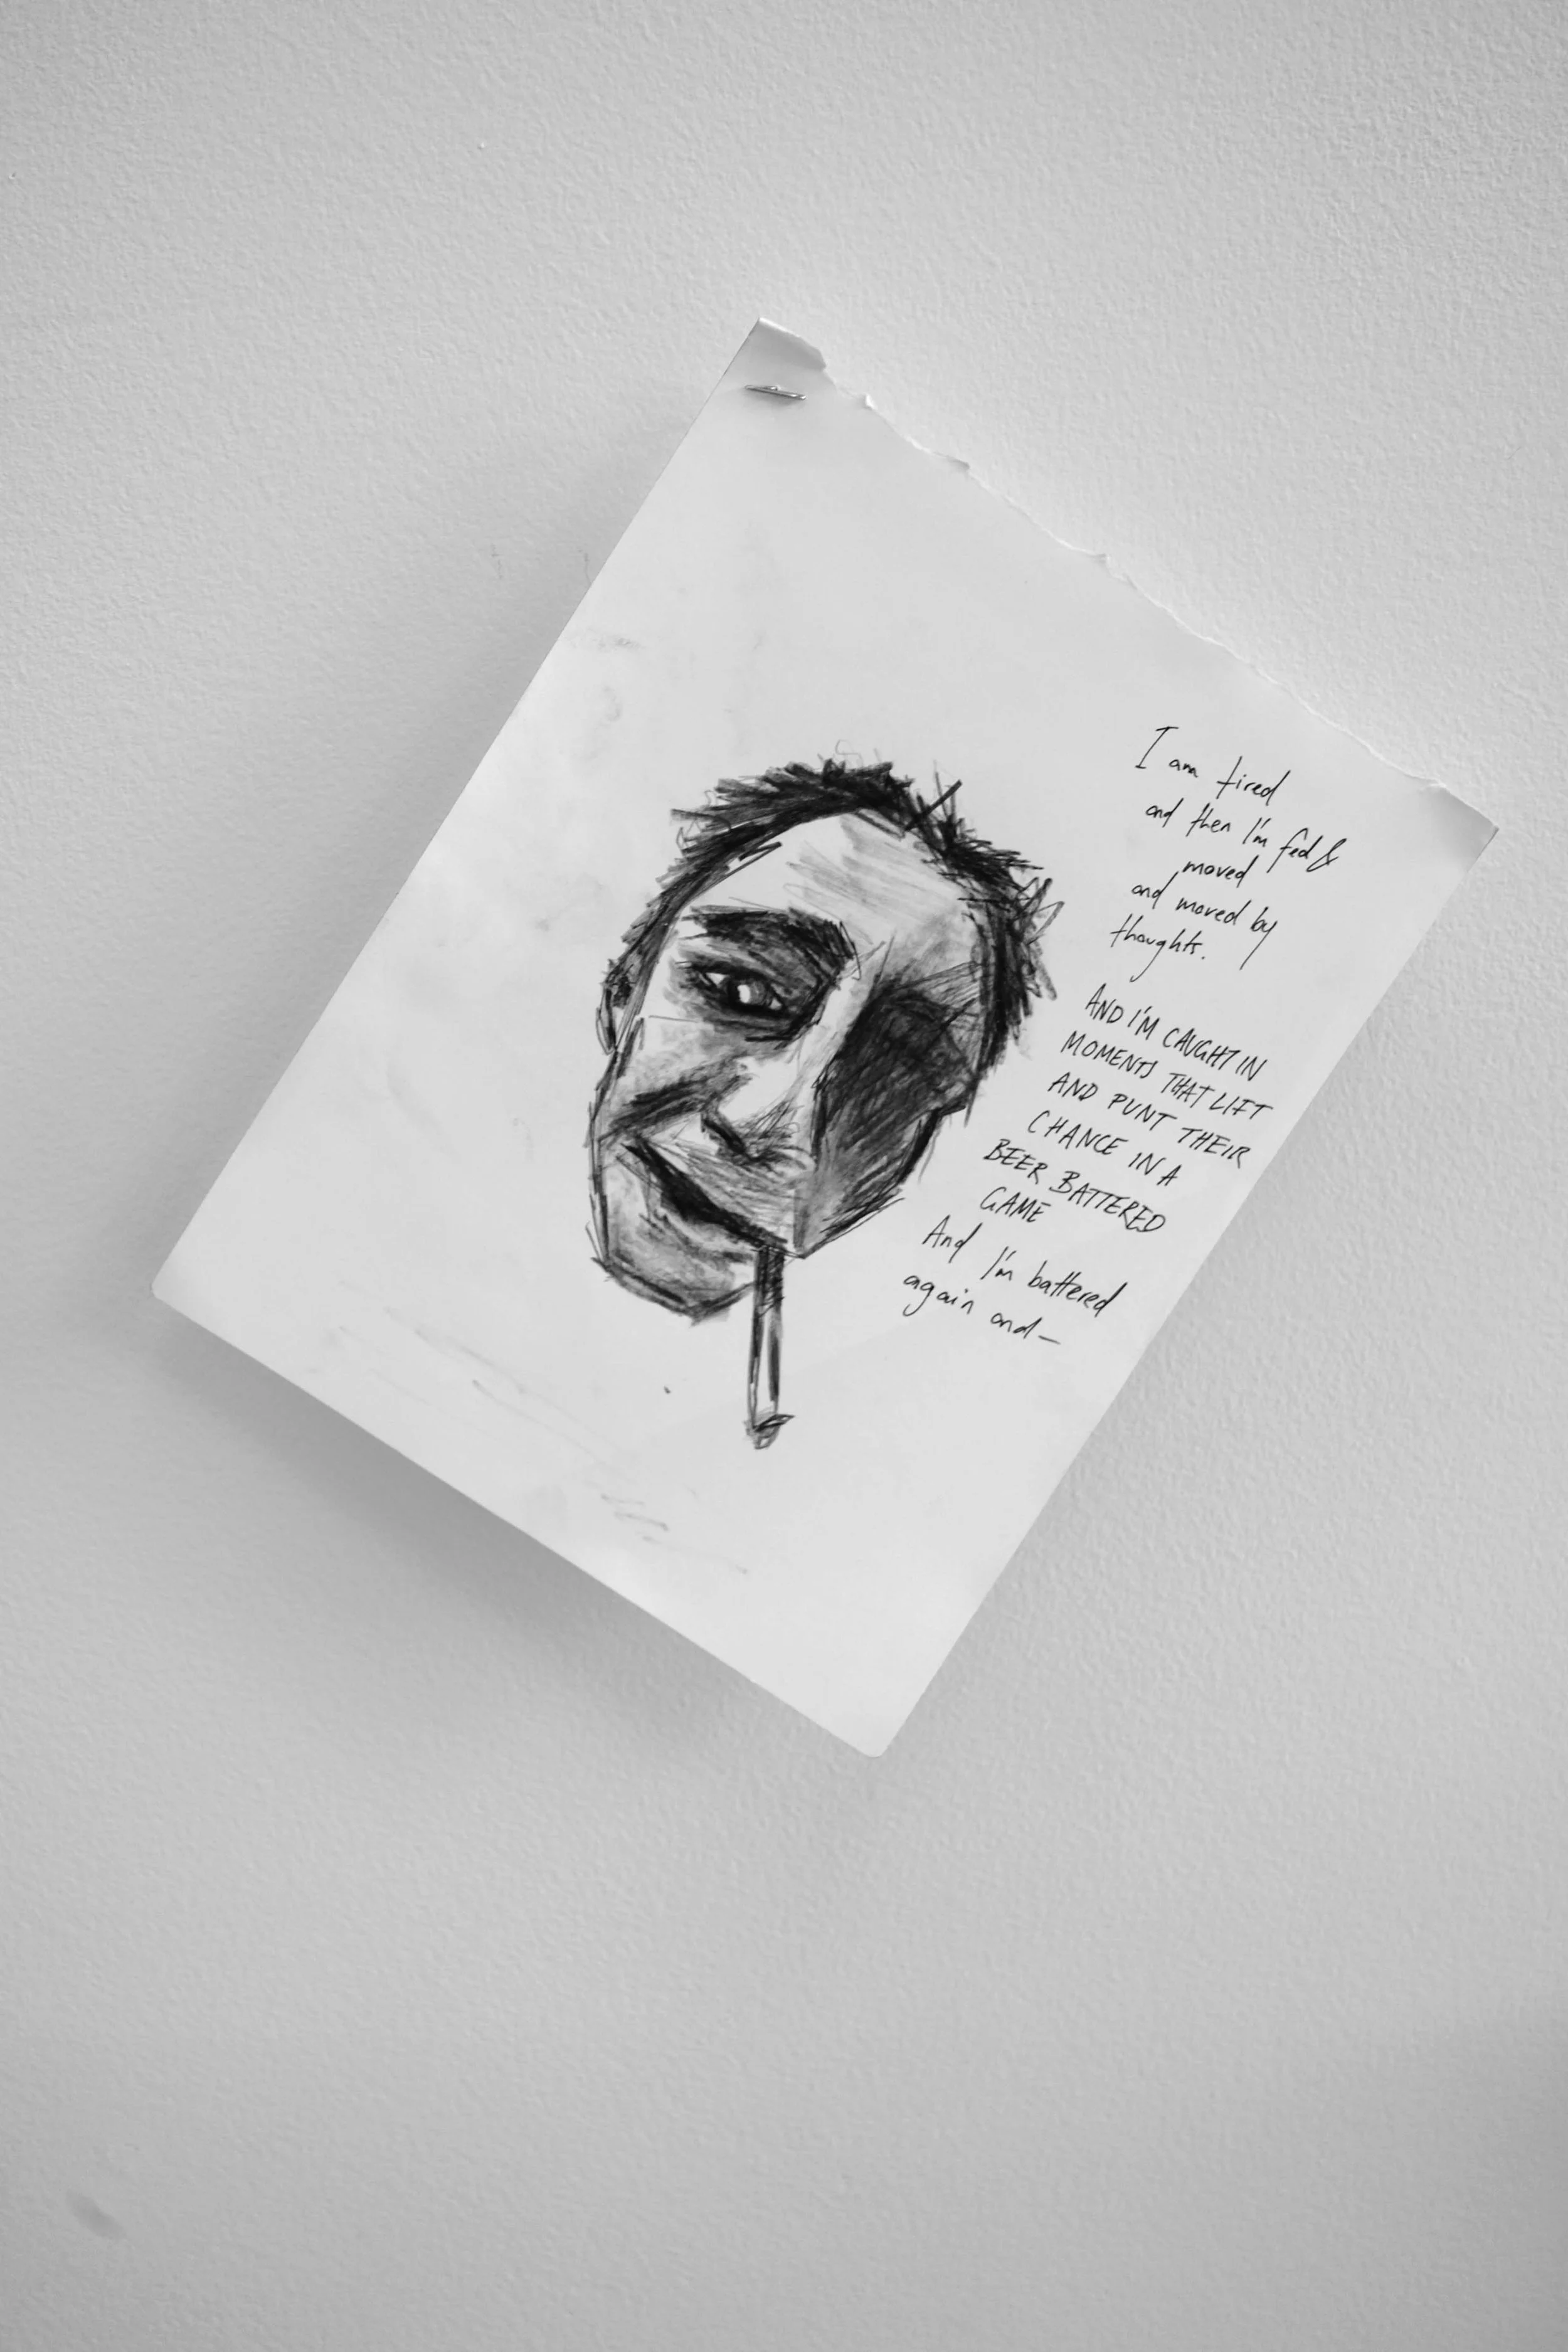 I am tired
and then I'm fed &
moved
and moved by
thoughts.
AND I'M CAUGHT IN
MOMENTS THAT LIFT
AND PUNT THEIR
CHANCE IN A
BEER BATTERED
GAME
And I'm battered
again and—